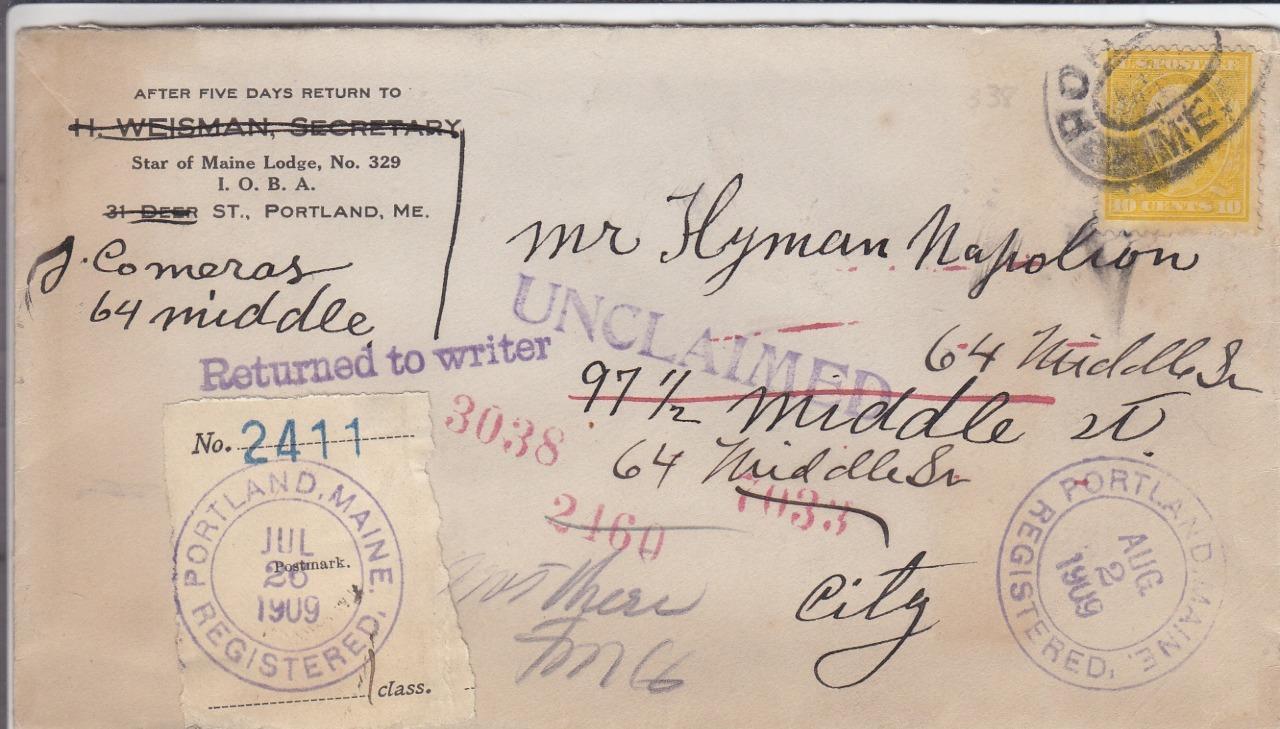 AFTER FIVE DAYS RETURN TO
H. WEISMAN, SECRETARY
Star of Maine Lodge, No. 329
I. O. B. A.
31 DEER ST., PORTLAND, ME.
J. Comeras
64 middle
U.S. POSTAGE
10 CENTS 10
Mr Hyman Napolion
64 Middle St
97 1/2 middle st
64 Middle St
City
UNCLAIMED
Returned to writer
3038
2460
7033
No. 2411
PORTLAND, MAINE.
REGISTERED,
JUL
26
1909
Postmark.
1 class.
not here
PORTLAND, MAINE,
REGISTERED,
AUG.
2
1909